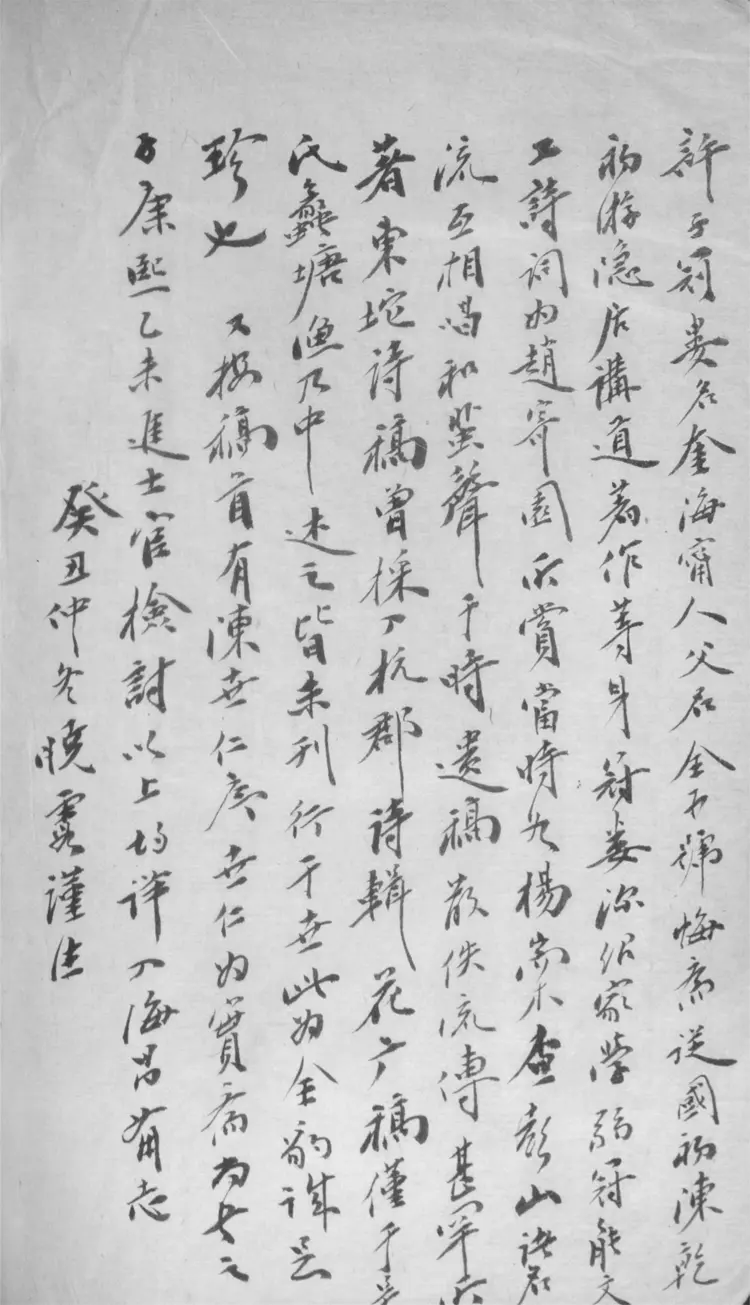 許子冠婁名奎海甯人父名全可號悔齋從國初陳乾
初游隱居講道著作等身冠婁深紹家學弱冠能文
工詩詞為趙寄園所賞當時如楊崇木查彭山諸君
流互相唱和蜚聲于時遺稿散佚流傳甚罕所
著東坨詩稿曾採入杭郡詩輯花广稿僅于吳
氏蠡塘漁乃中述之皆未刊行于世此為全豹誠足
珍也 又按稿首有陳世仁序世仁為寶齋尚書之
子康熙乙未進士官檢討以上均詳入海昌備志
癸丑仲冬曉霞謹注